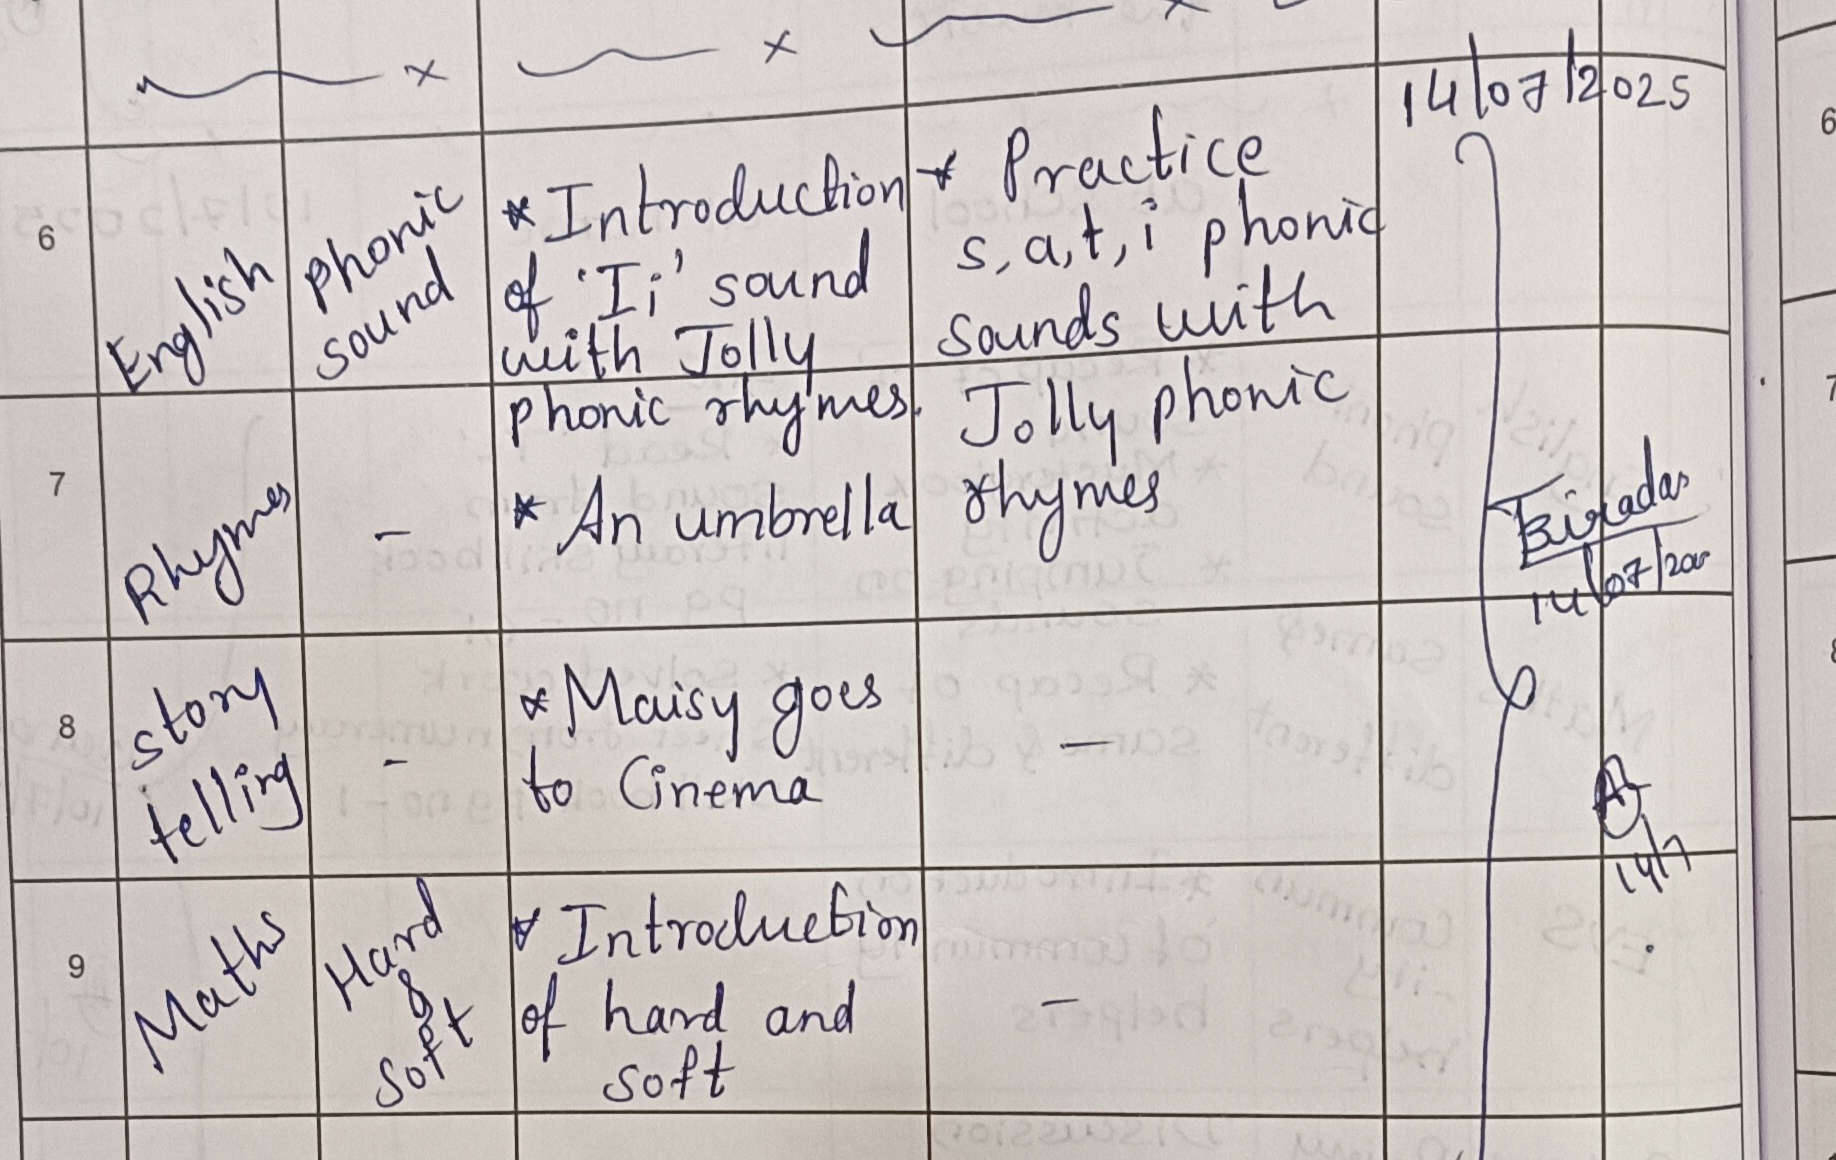 14/07/2025
6
English
phonic
sound
* Introduction
of 'Ii' sound
with Jolly
phonic rhymes.
* Practice
s, a, t, i phonic
sounds with
Jolly phonic
rhymes
7
Rhymes
-
* An umbrella
Biradar
14/07/202
8
story
telling
-
* Maisy goes
to Cinema
-
14/7
9
Maths
Hard
&
Soft
* Introduction
of hard and
soft
-
6
7
8